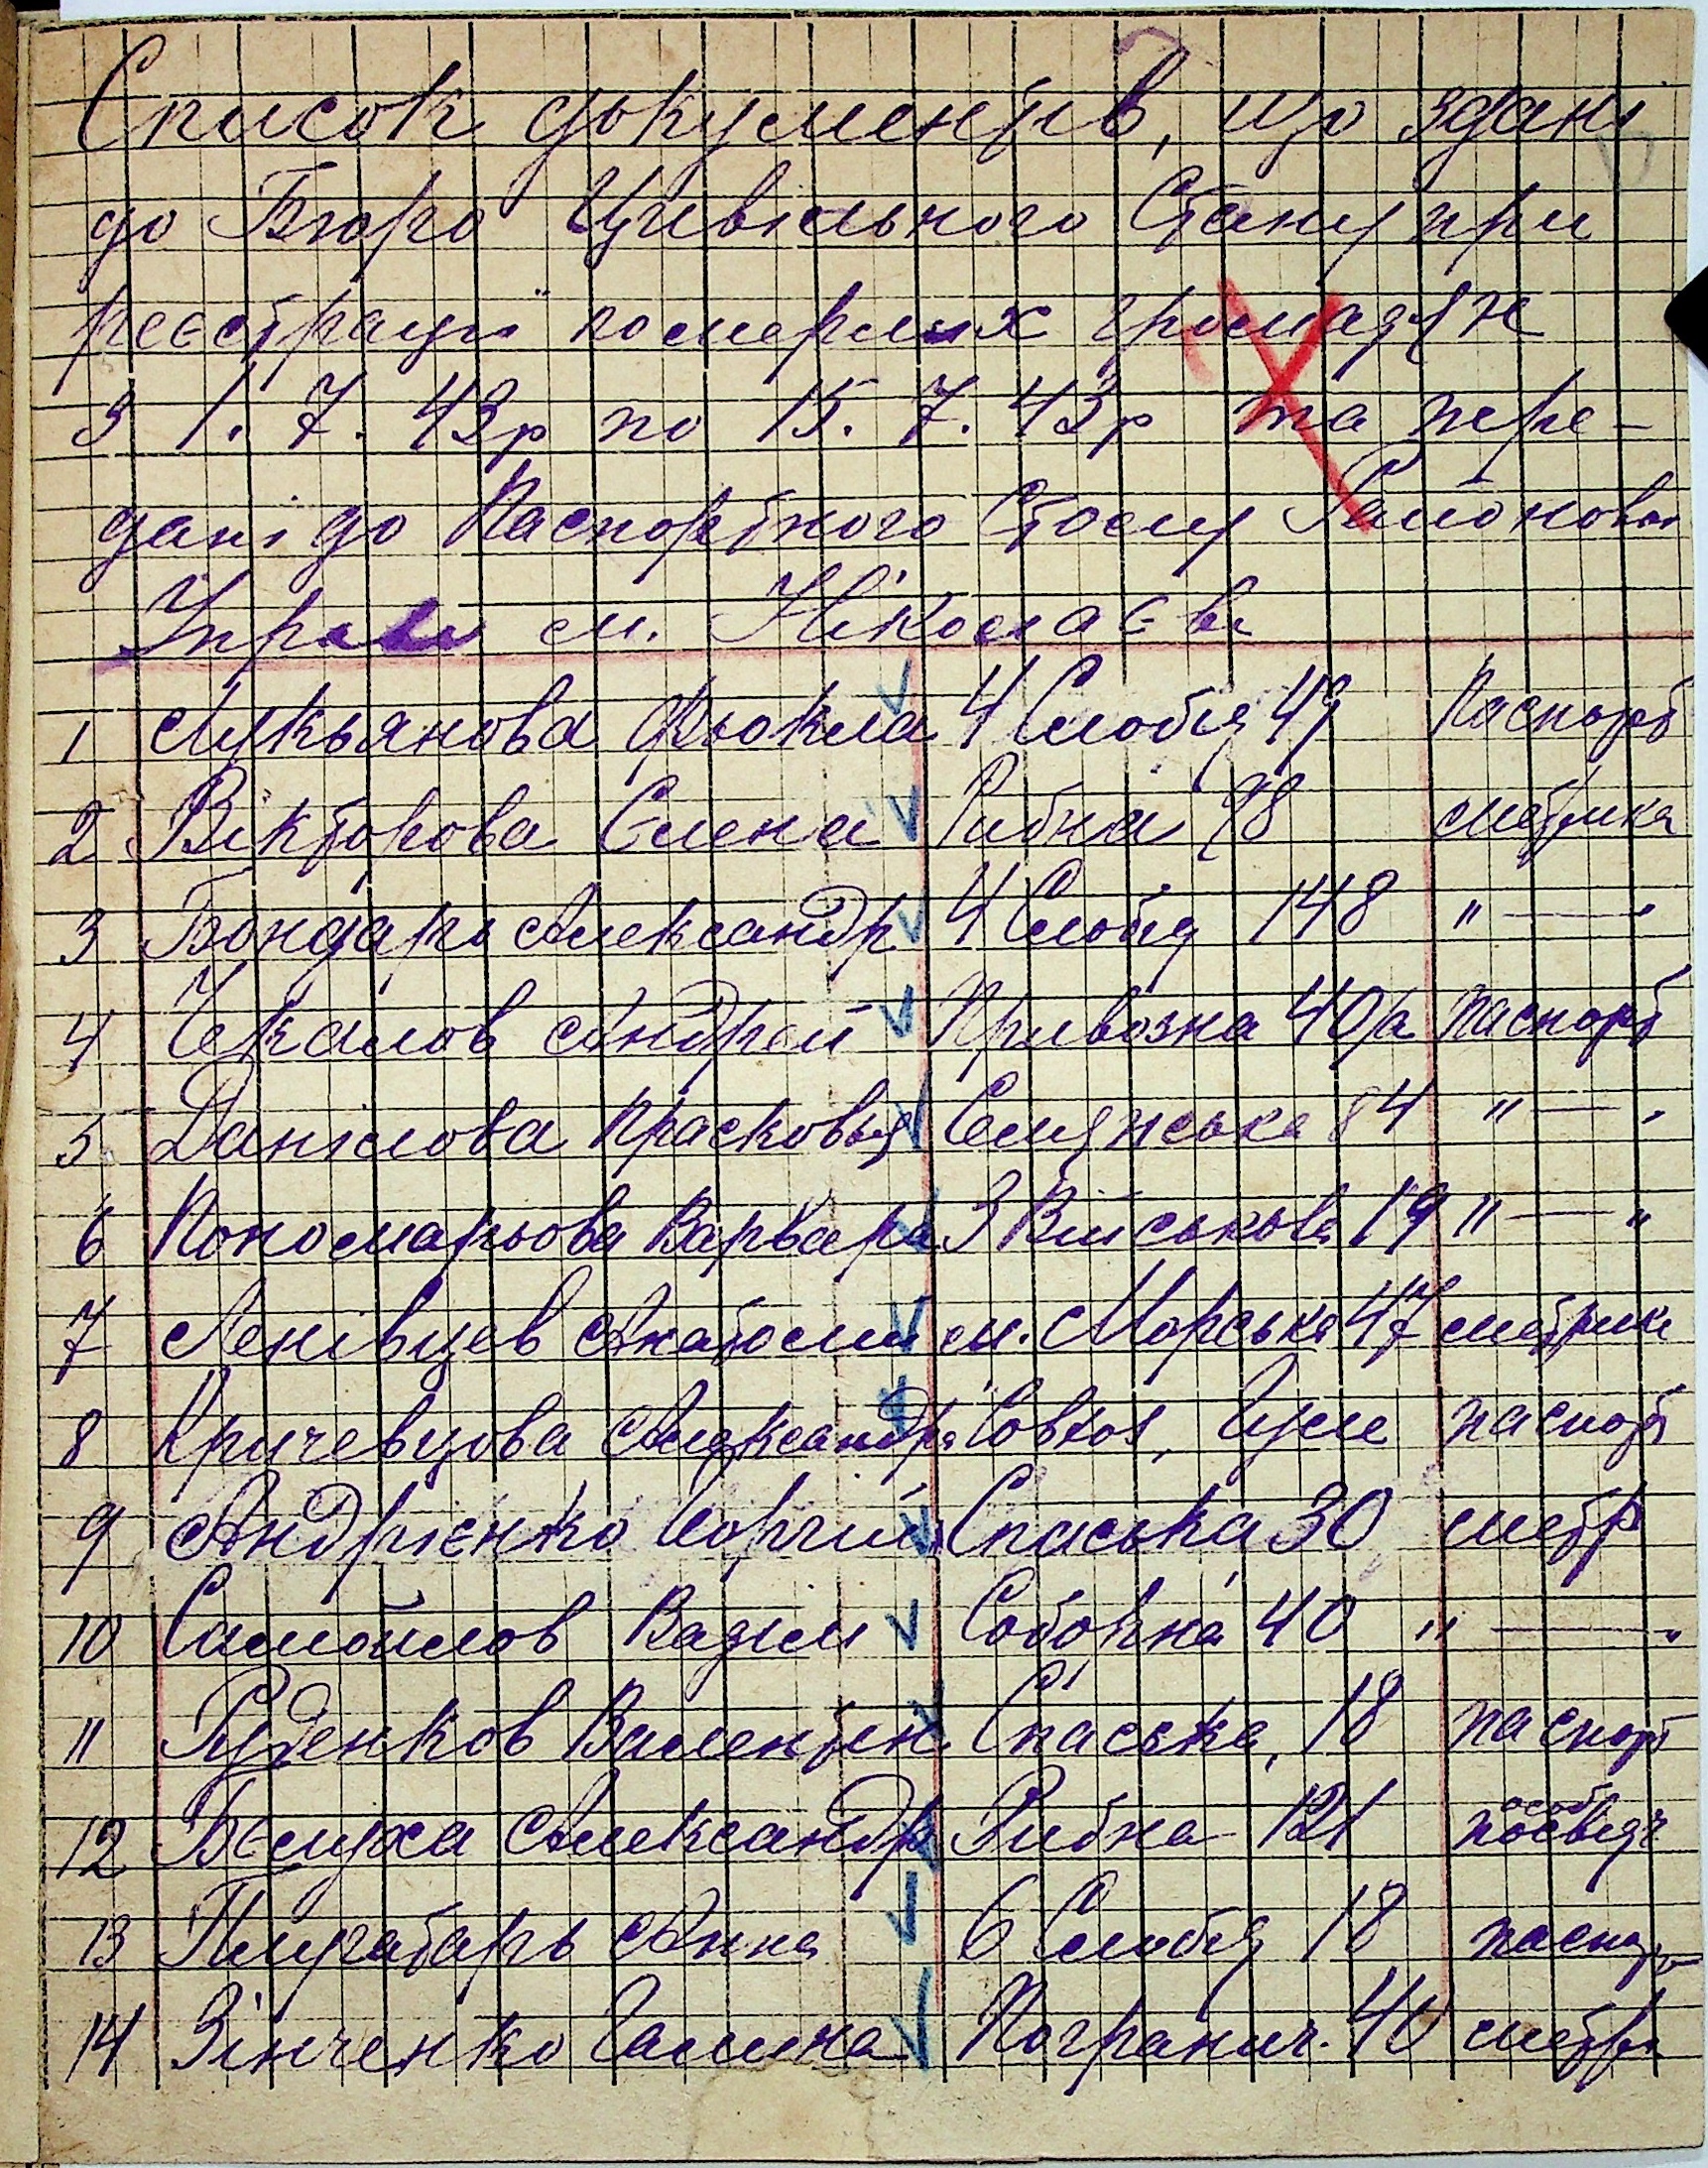 Список документів, що здані
до Бюро Цивільного Стану при
реєстрації померлих громадян
з 1. 7. 43р по 15. 7. 43р та пере-
дані до Паспортного Столу Районової
Управи м. Ніколаєва
1 Лукьянова Фьокла 4 Слобід 49 Паспорт
2 Вікторова Єлена Рибна 98 метрика
3 Бондарь Александр 4 Слобід 148 " — "
4 Чекалов Андрей Привозна 40/а паспорт
5 Данілова Прасковья Селянська 84 " — "
6 Пономарьова Варвара 3 Військова 19 " — "
7 Лєнівцев Анатолий м. Морська 47 метрика
8 Кричевцова Александра Совхоз, паспорт
9 Андрієнко Спаська 30 метр
10 Самойлов Вадім Соборна 40 " — "
11 Руденков Валентін Спаська, 18 паспорт
12 Бєлуха Александр Рибна 121 особ посвідч
13 Плугатарь Анна 6 Слобід 18 паспорт
14 Зінченко Галина Погранич. 40 метри